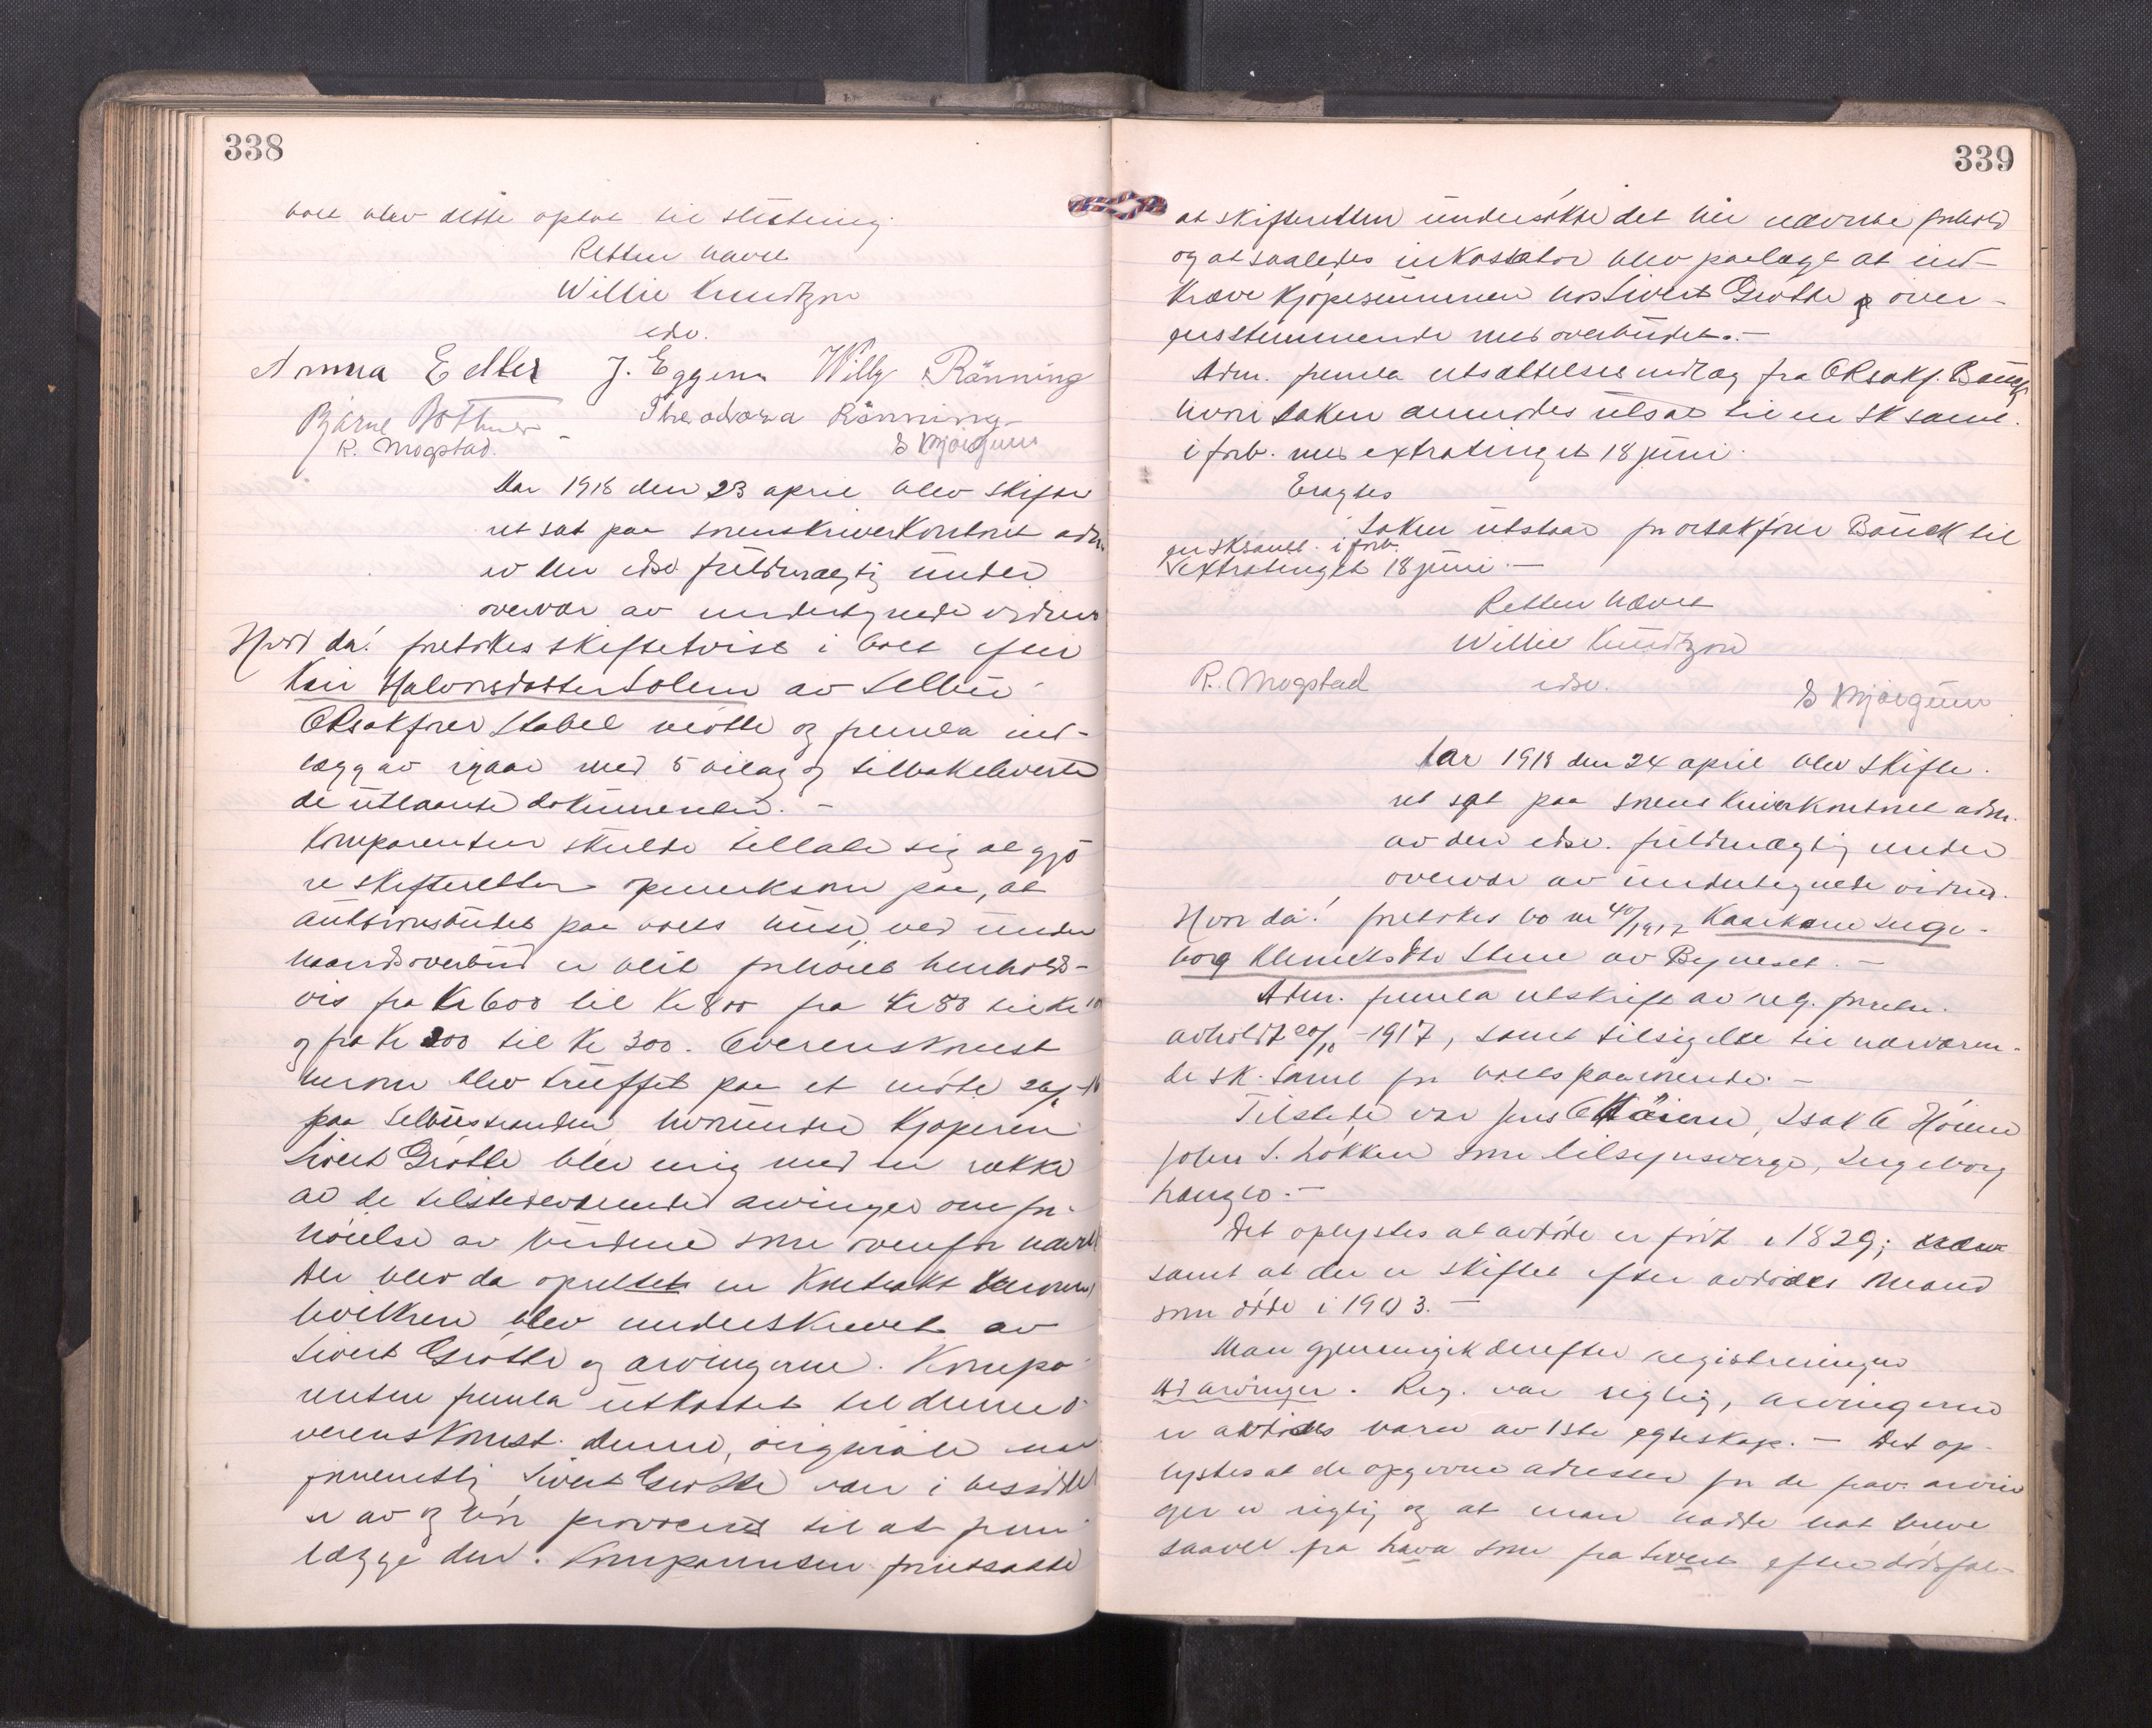 338
boet blev dette optat til slutning.
Retten hævet
Willie Knudtzon
edsv.
Anna Edler J. Eggen Willy Rønning
Bjarne Bothner Theodora Rönning
R. Mogstad. E Mjøigum
Aar 1918 den 23 april blev skifte
ret sat paa sorenskriverkontoret adm.
av den edsv fuldmægtig under
overvær av undertegnede vidner
Hvor da! foretokes skiftetvist i boet efter
Kari Halvorsdatter Solem av Selbu
ORsakfører Stabel møtte og fremla ind-
læg av igaar med 5 bilag og tilbakeleverte
de utlaante dokumenter. -
Komparenten skulde tillate sig at gjö
re skifteretten opmerksom paa, at
auktionsbudet paa boets huse ved under
haandsoverbud er blit forhøiet henholds-
vis fra Kr 600 til Kr 800 fra Kr 80 til Kr 10
og fra Kr 200 til Kr 300. Overenskomst
herom blev truffet paa et møte
paa Selbustranden hvorunder Kjøperen
Sivert Grøtte blev enig med en række
av de tilstedeværende arvinger om for-
høielse av budene som ovenfor nævnt
Der blev da oprettet en Kontrakt herom
hvilken blev underskrevet av
Sivert Grøtte og arvingerne. Kompa-
renten fremla utkastet til denne o-
verenskomst. denne, originale var
formentlig Sivert Grøtte var i besiddel
se av og bør provoceres til at frem
lægge den. Komparenten forutsatte
339
at skifteretten undersøkte det her nævnte forhold
og at saaledes inkassator blev paalagt at ind-
kræve Kjøpesummen hos Sivert Grøtte og over-
ensstemmende med overbudet. -
Adm. fremla utsættelsesindlæg fra ORsakf. Bauck
hvori saken anmodes utsat til en sk saml.
i forb. med extratinget 18 juni.
Eragtes
Saken utstaar for orsakfører Bauck til
en sksaml. i forb.
extratinget 18 juni. -
Retten hævet
Willie Knudtzon
R. Mogstad edsv. E Mjøigum
Aar 1918 den 24 april blev skifte-
ret sat paa sorenskriverkontoret adm.
av den edsv. fuldmægtig under
overvær av undertegnede vidner.
Hvor da! foretokes bo nr 40/1917 Kaarkone Inge-
borg Klemetsdtr Stene av Bynesset. -
Adm. fremla utskrift av reg. forretn.
avholdt 20/10-1917, samt tilsigelse til nærværen-
de sk. saml for boets paarørende. -
Tilstede var Jens O Høiem, Isak O Høiem
John S. Løkken som tilsynsverge, Ingeborg
Langlo. -
Det oplystes at avdøde er født i 1829;
samt at der er skiftet efter avdødes Mand
som døde i 1903. -
Man gjennemgik derefter registreringen
Ad arvinger. Reg. var rigtig, arvingerne
er avdødes barn av 1ste egteskap. - Det op-
lystes at de opgivne adresser for de frav. arvin
ger er rigtig og at man hadde hat breve
saavel fra Lava som fra Sivert efter dødsfal-